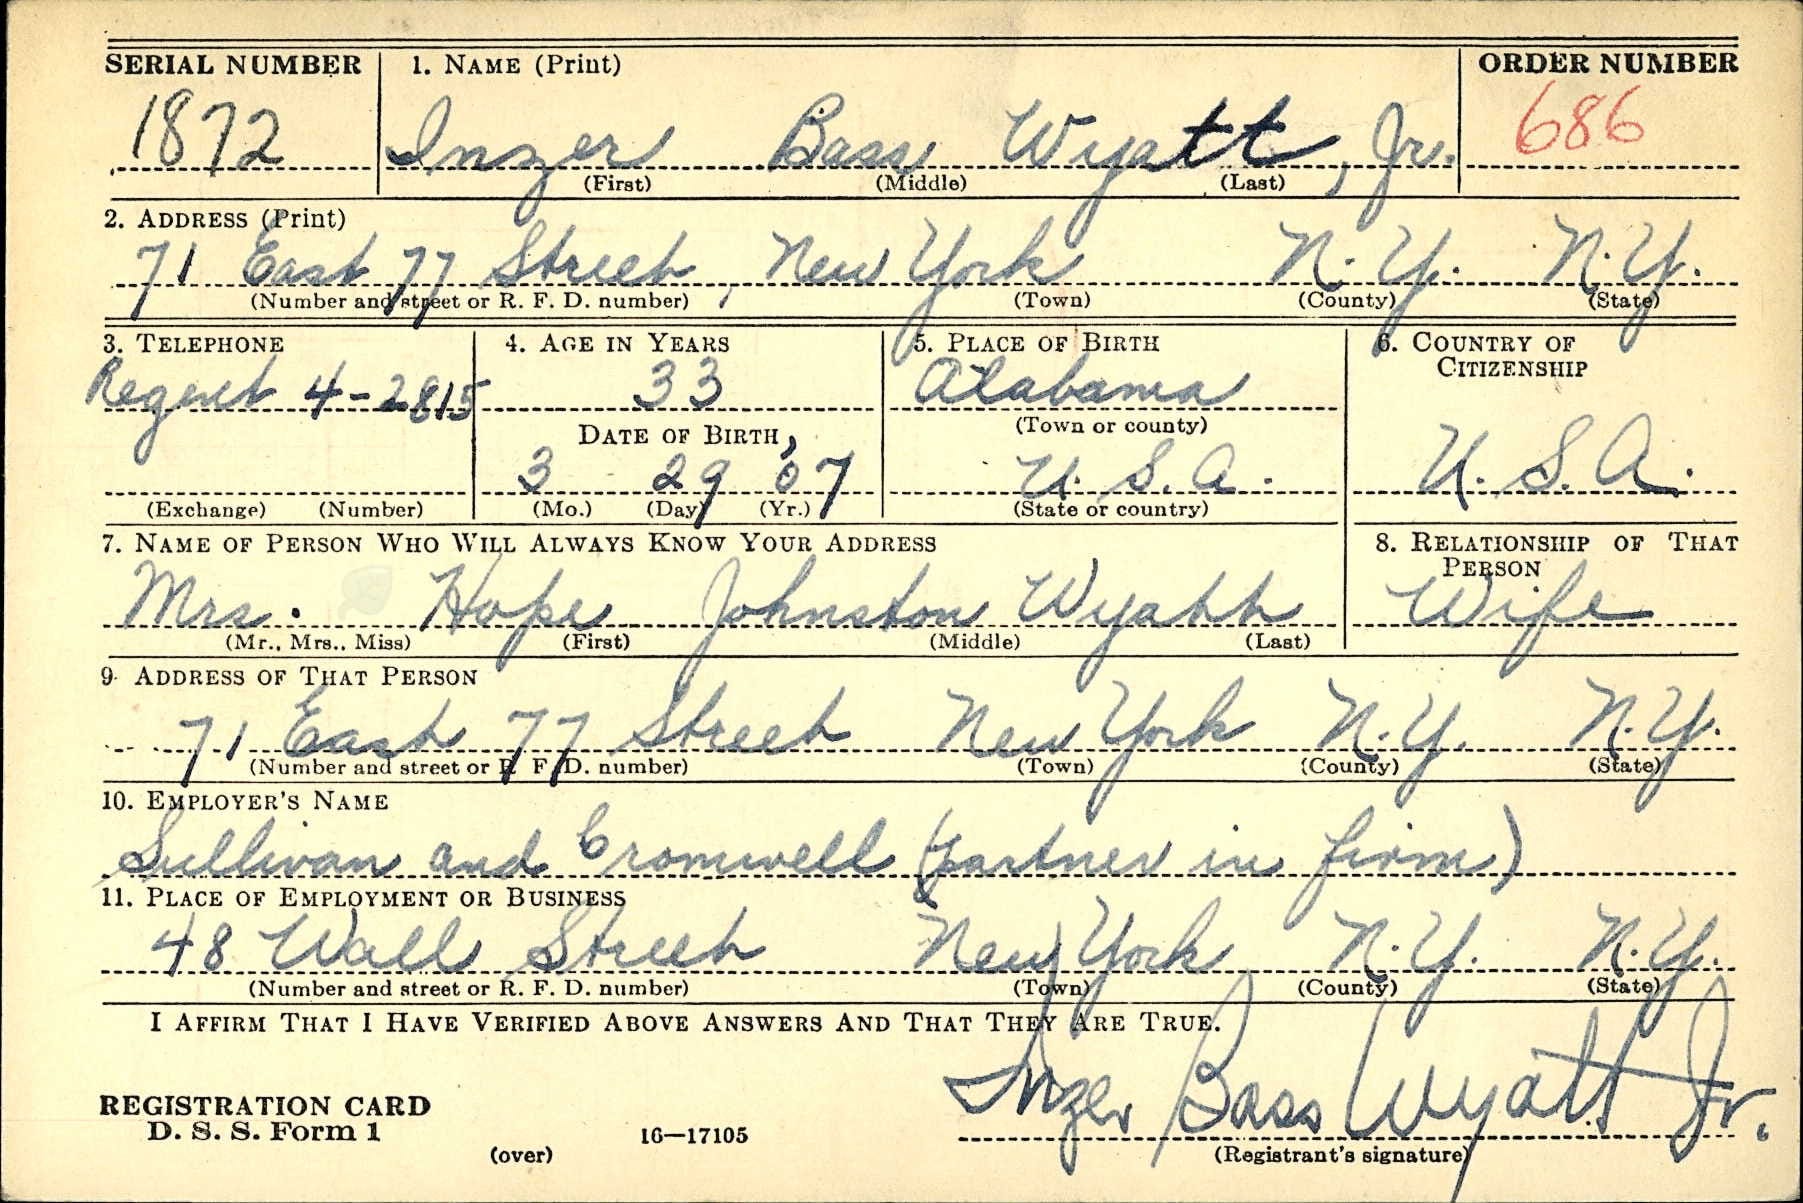 SERIAL NUMBER 1. NAME (Print) ORDER NUMBER
1872 Inzer Bass Wyatt, Jr. 686
(First) (Middle) (Last)
2. ADDRESS (Print)
71 East 77 Street, New York N.Y. N.Y.
(Number and street or R. F. D. number) (Town) (County) (State)
3. TELEPHONE 4. AGE IN YEARS 5. PLACE OF BIRTH 6. COUNTRY OF CITIZENSHIP
Regent 4-2815 33 Alabama
(Town or county)
DATE OF BIRTH
3 29 07 U.S.A. U.S.A.
(Exchange) (Number) (Mo.) (Day) (Yr.) (State or country)
7. NAME OF PERSON WHO WILL ALWAYS KNOW YOUR ADDRESS 8. RELATIONSHIP OF THAT PERSON
Mrs. Hope Johnston Wyatt Wife
(Mr., Mrs., Miss) (First) (Middle) (Last)
9. ADDRESS OF THAT PERSON
71 East 77 Street New York N.Y. N.Y.
(Number and street or R. F. D. number) (Town) (County) (State)
10. EMPLOYER'S NAME
Sullivan and Cromwell (partner in firm)
11. PLACE OF EMPLOYMENT OR BUSINESS
48 Wall Street New York N.Y. N.Y.
(Number and street or R. F. D. number) (Town) (County) (State)
I AFFIRM THAT I HAVE VERIFIED ABOVE ANSWERS AND THAT THEY ARE TRUE.
Inzer Bass Wyatt Jr.
REGISTRATION CARD
D. S. S. Form 1 16—17105
(over) (Registrant's signature)